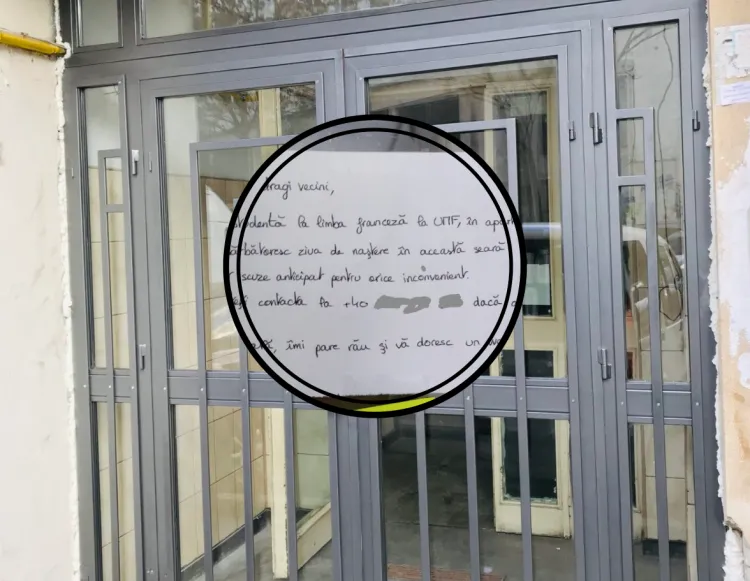 Dragi vecini,
studentă la limba franceză la UMF, în
sărbătoresc ziua de naștere în această seară
scuze anticipat pentru orice inconvenient.
contacta la +40 dacă
îmi pare rău și vă doresc un